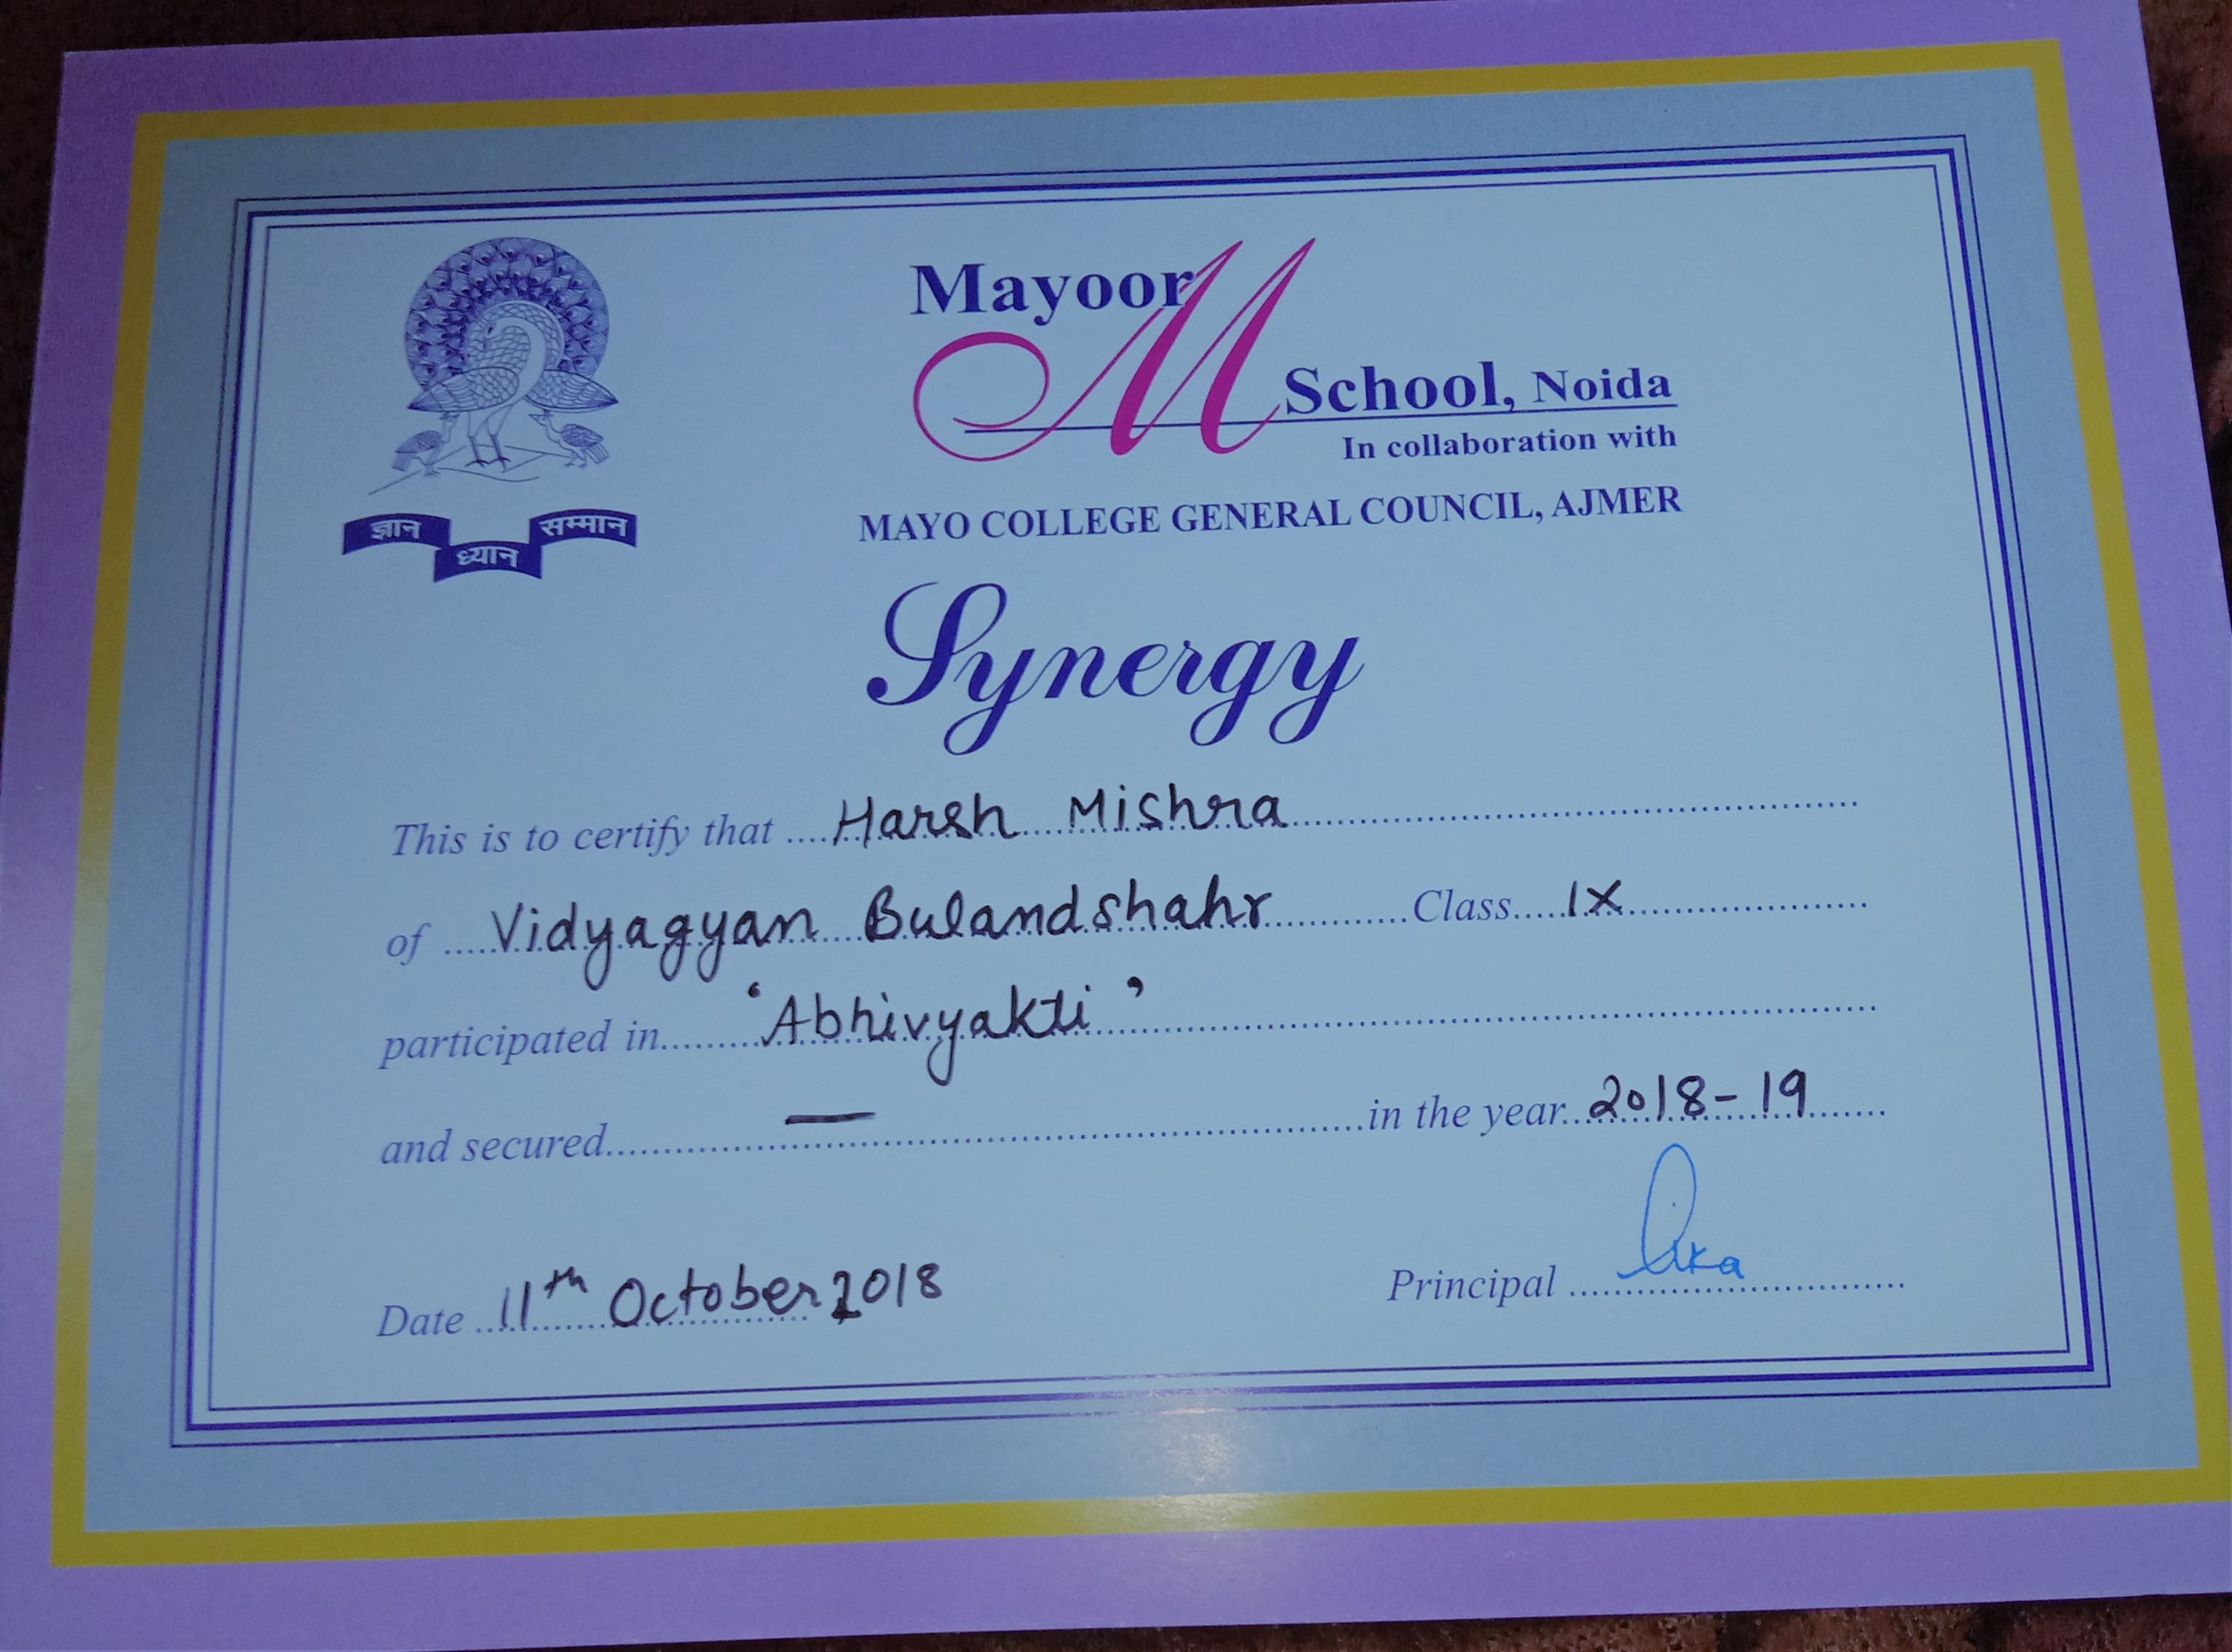 Mayoor
M
School, Noida
In collaboration with
MAYO COLLEGE GENERAL COUNCIL, AJMER
ज्ञान ध्यान सम्मान
Synergy
This is to certify that Harsh Mishra
of Vidyagyan Bulandshahr Class IX
participated in 'Abhivyakti'
and secured — in the year 2018-19
Date 11th October 2018
Principal